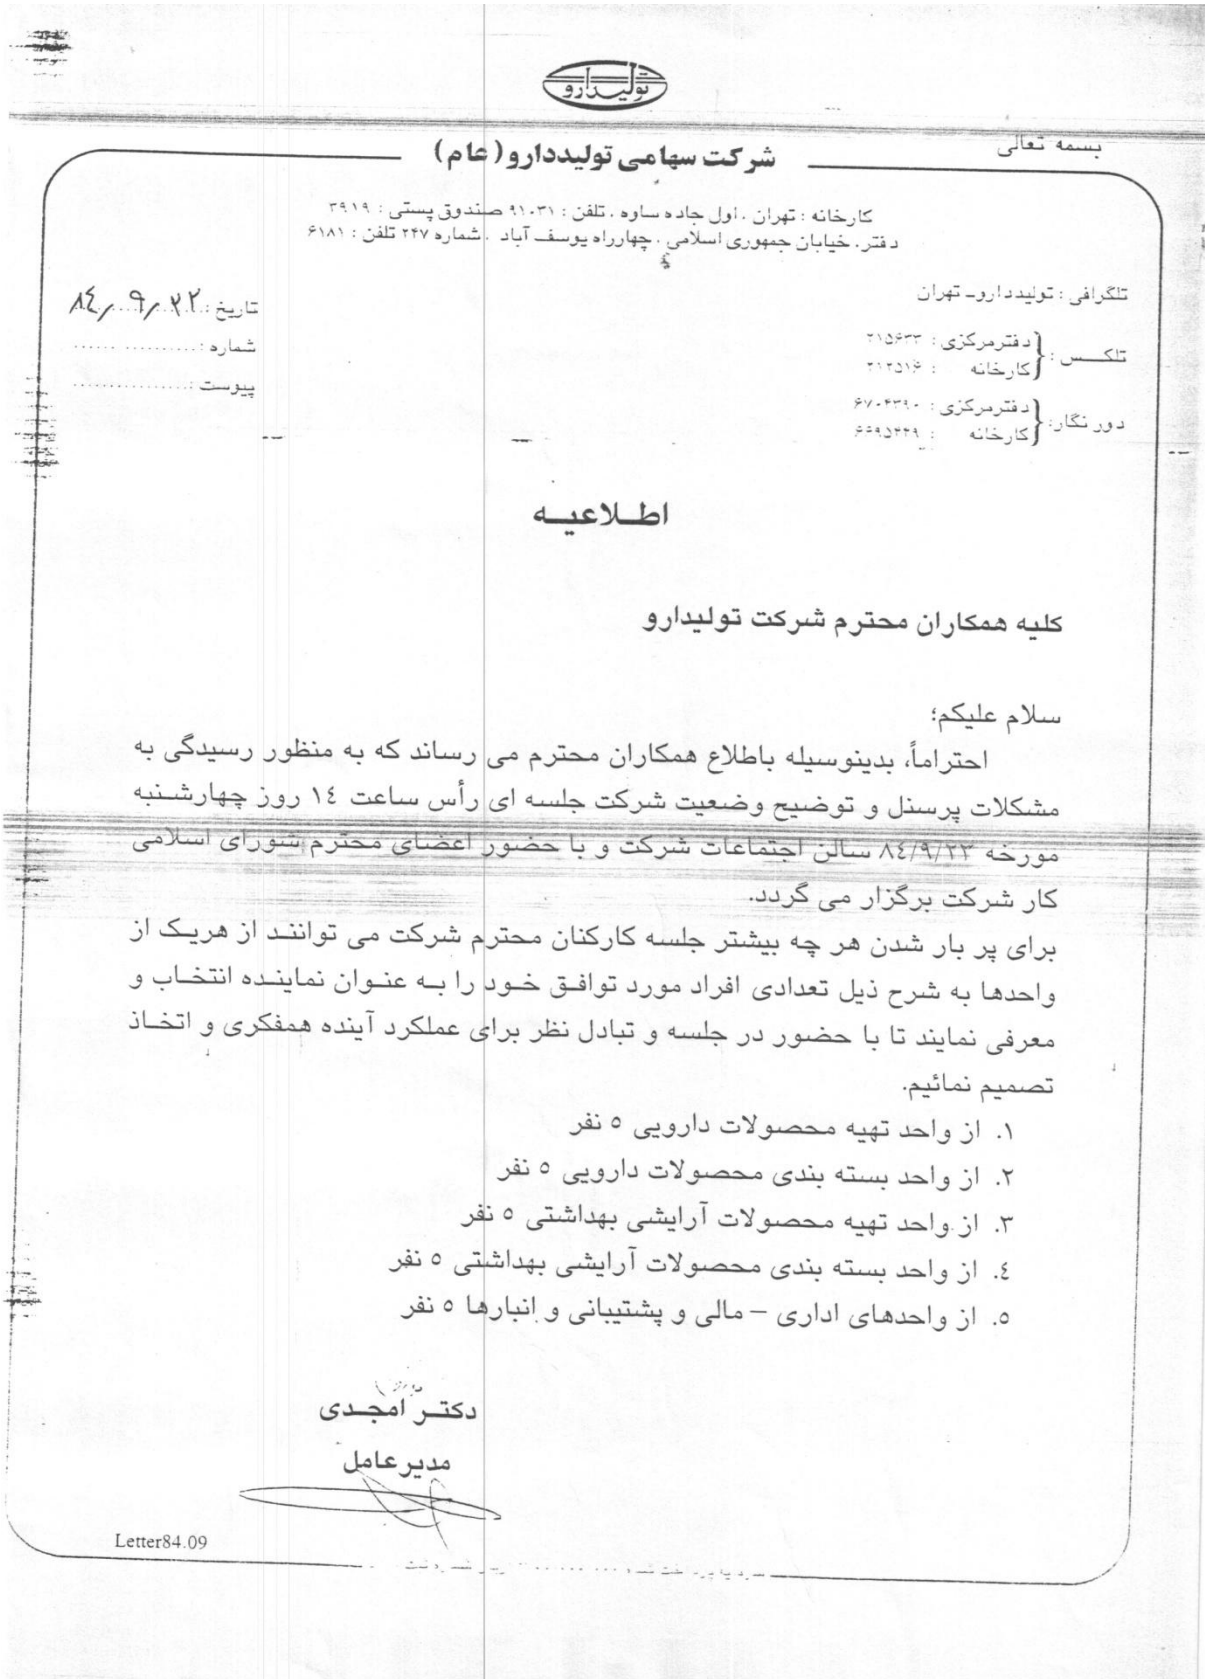 تولیددارو
بسمه تعالی
شرکت سهامی تولیددارو (عام)
کارخانه : تهران . اول جاده ساوه . تلفن : ۹۱۰۳۱ صندوق پستی : ۳۹۱۹
دفتر . خیابان جمهوری اسلامی . چهارراه یوسف آباد . شماره ۲۴۷ تلفن : ۶۱۸۱
تلگرافی : تولیددارو ـ تهران
تلکس : دفترمرکزی : ۲۱۵۶۳۳
کارخانه : ۲۱۲۵۱۶
دورنگار : دفترمرکزی : ۶۷۰۴۳۹۰
کارخانه : ۶۶۹۵۴۴۹
تاریخ : ۸۴/۹/۲۲
شماره :
پیوست :
اطلاعیه
کلیه همکاران محترم شرکت تولیدارو
سلام علیکم؛
احتراماً، بدینوسیله باطلاع همکاران محترم می رساند که به منظور رسیدگی به
مشکلات پرسنل و توضیح وضعیت شرکت جلسه ای رأس ساعت ۱٤ روز چهارشنبه
مورخه ۸٤/۹/۲۳ سالن اجتماعات شرکت و با حضور اعضای محترم شورای اسلامی
کار شرکت برگزار می گردد.
برای پر بار شدن هر چه بیشتر جلسه کارکنان محترم شرکت می توانند از هریک از
واحدها به شرح ذیل تعدادی افراد مورد توافق خود را به عنوان نماینده انتخاب و
معرفی نمایند تا با حضور در جلسه و تبادل نظر برای عملکرد آینده همفکری و اتخاذ
تصمیم نمائیم.
۱. از واحد تهیه محصولات دارویی ٥ نفر
۲. از واحد بسته بندی محصولات دارویی ٥ نفر
۳. از واحد تهیه محصولات آرایشی بهداشتی ٥ نفر
٤. از واحد بسته بندی محصولات آرایشی بهداشتی ٥ نفر
٥. از واحدهای اداری – مالی و پشتیبانی و انبارها ٥ نفر
دکتر امجدی
مدیرعامل
Letter84.09